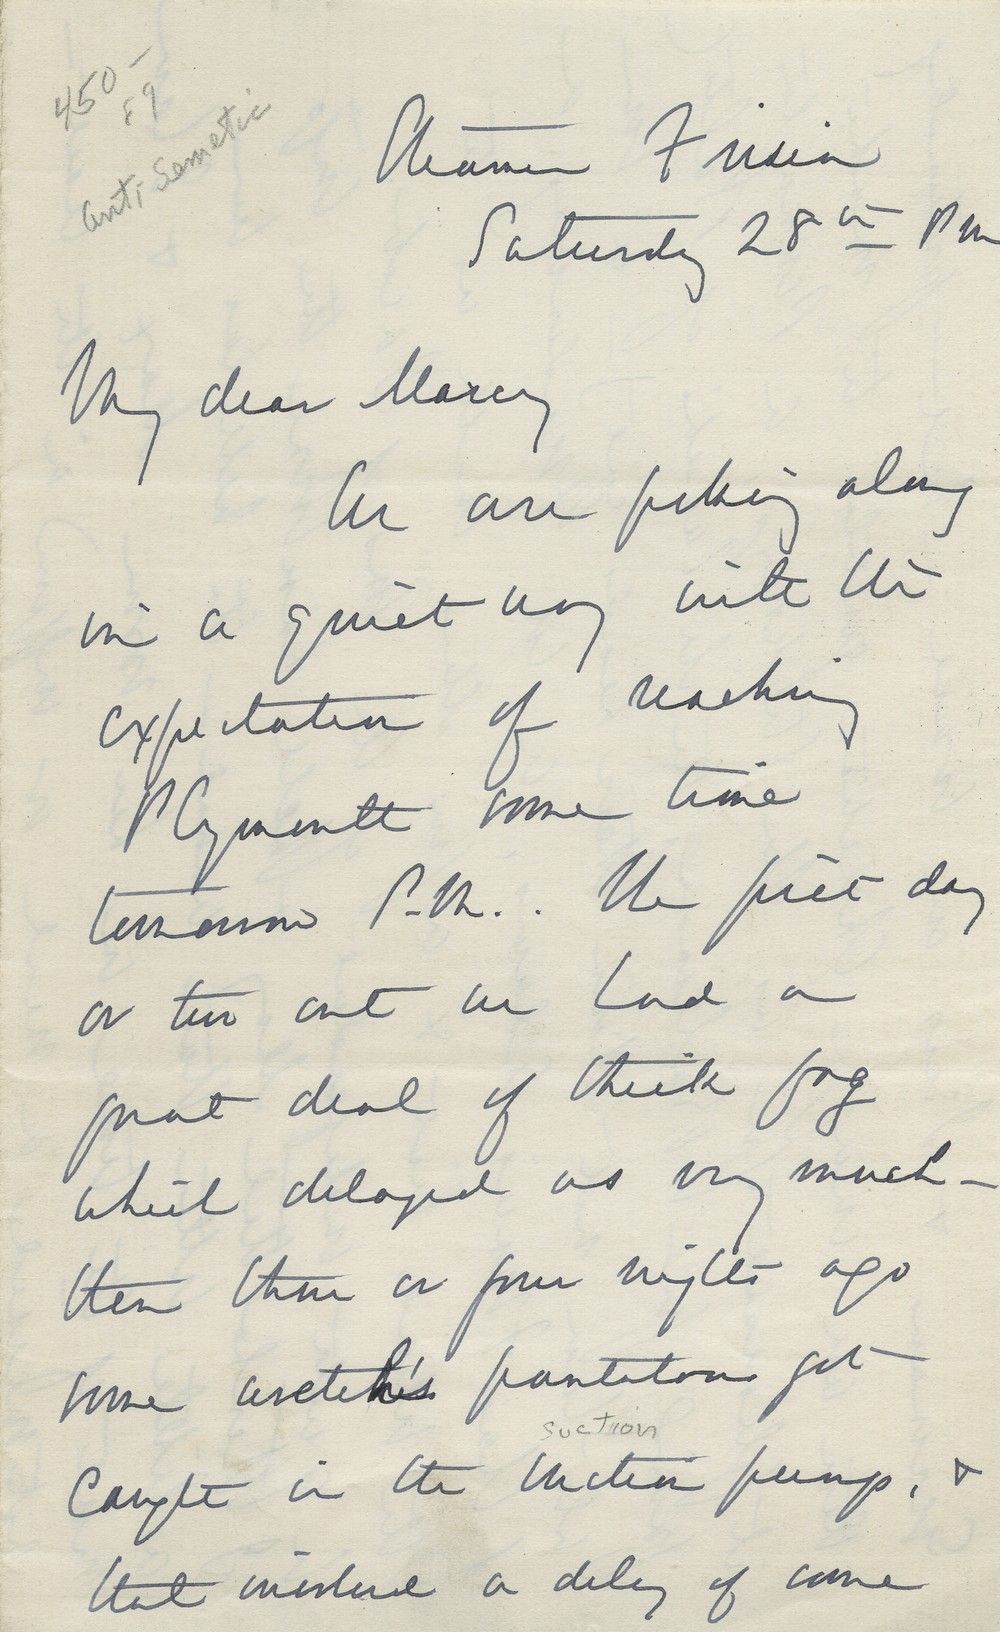 450-
89
Anti Semetic
Steamer Frisia
Saturday 28th PM
My dear Marcy
We are poking along
in a quiet way with the
expectation of reaching
Plymouth some time
tomorrow P.M.. The first day
or two out we had a
great deal of thick fog
which delayed us very much -
then three or four nights ago
some wretch's pantaloons got
suction
caught in the suction pump, &
that involved a delay of some